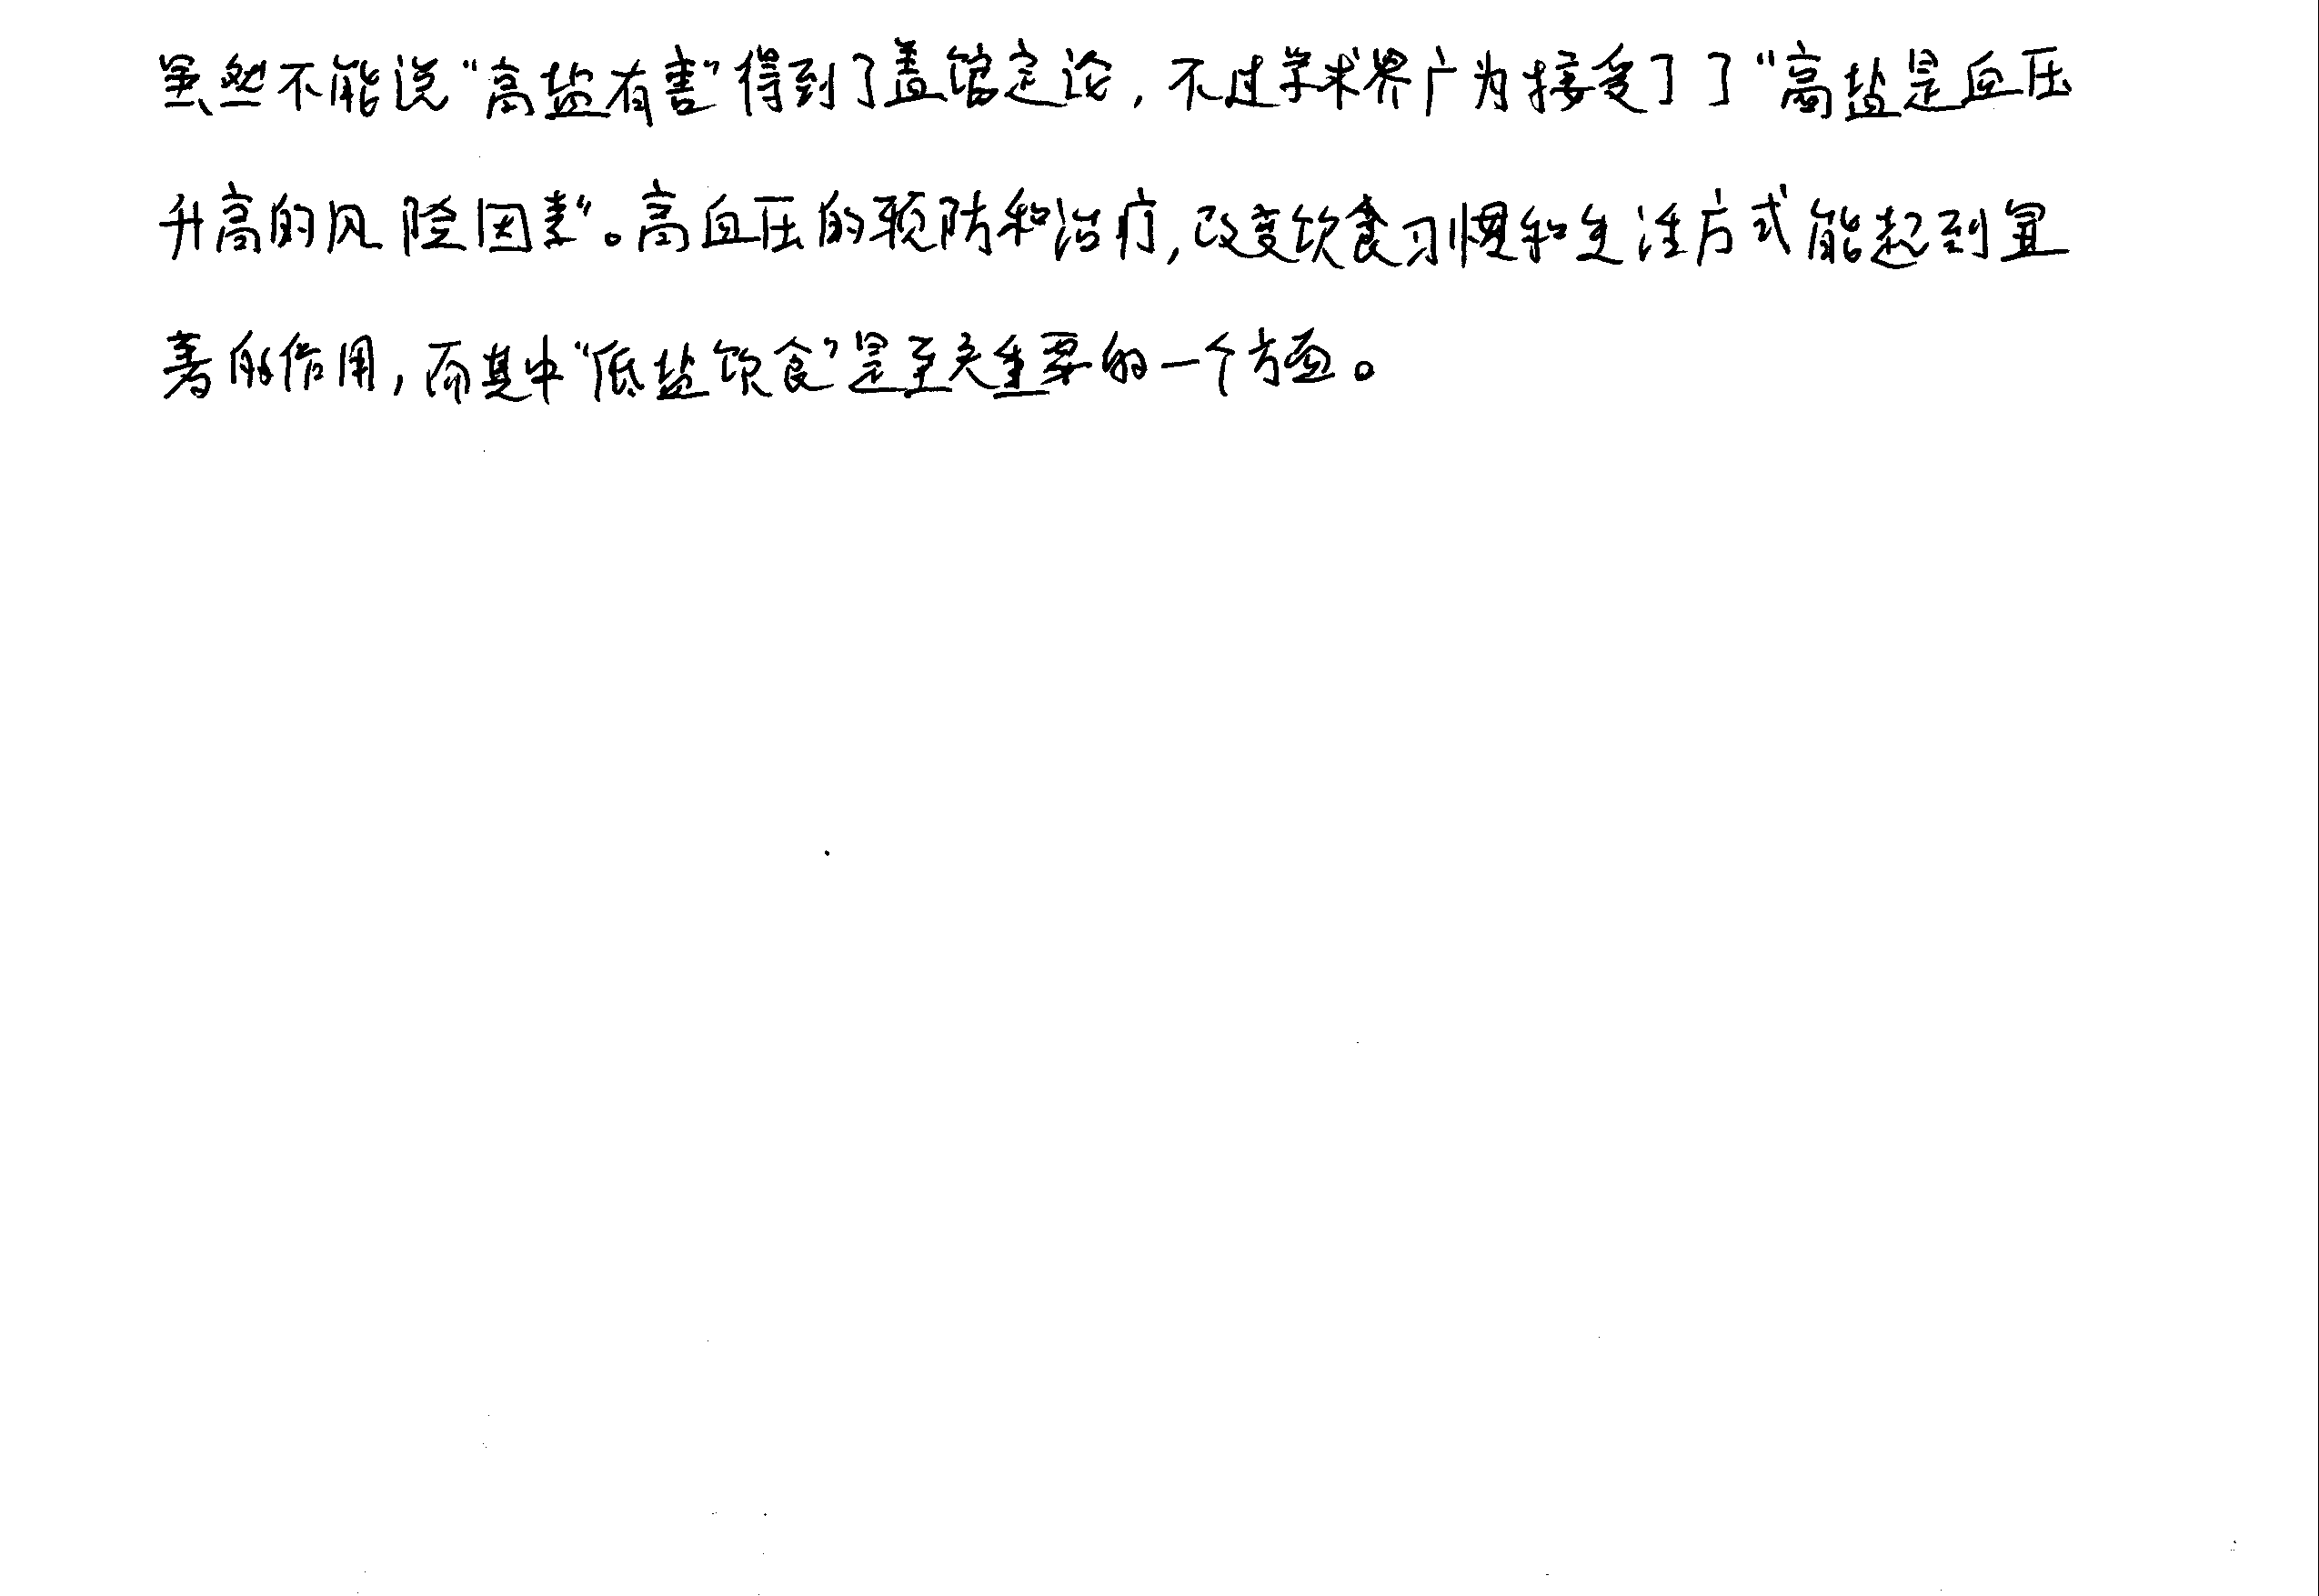 虽然不能说“高盐有害”得到了盖馆定论，不过学术界广为接受了了“高盐是血压
升高的风险因素”。高血压的预防和治疗，改变饮食习惯和生活方式能起到显
著的作用，而其中“低盐饮食”是至关重要的一个方面。